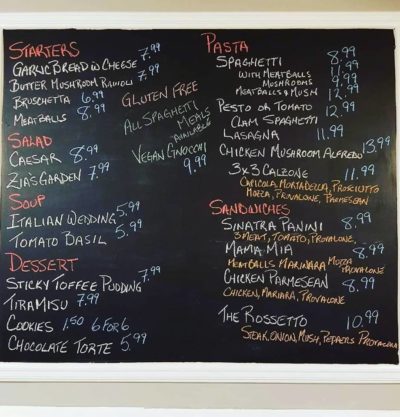 STARTERS
GARLIC BREAD W CHEESE 7.99
BUTTER MUSHROOM RAVIOLI 7.99
BRUSCHETTA 6.99
MEATBALLS 8.99
SALAD
CAESAR 8.99
ZIA'S GARDEN 7.99
SOUP
ITALIAN WEDDING 5.99
TOMATO BASIL 5.99
DESSERT
STICKY TOFFEE PUDDING 7.99
TIRAMISU 7.99
COOKIES 1.50 6 FOR 6
CHOCOLATE TORTE 5.99
GLUTEN FREE
ALL SPAGHETTI
MEALS
AVAILABLE
VEGAN GNOCCHI
9.99
PASTA
SPAGHETTI 8.99
WITH MEATBALLS 11.99
MUSHROOMS 9.99
MEATBALLS & MUSH 12.99
PESTO OR TOMATO 12.99
CLAM SPAGHETTI
LASAGNA 11.99
CHICKEN MUSHROOM ALFREDO 13.99
3x3 CALZONE 11.99
CAPICOLA, MORTADELLA, PROSCIUTTO
MOZZA, PROVALONE, PARMESEAN
SANDWICHES
SINATRA PANINI 8.99
3 MEAT, TOMATO, PROVALONE,
MAMA MIA 8.99
MEATBALLS MARINARA MOZZA
PROVALONE
CHICKEN PARMESEAN 8.99
CHICKEN, MARIARA, PROVALONE
THE ROSSETTO 10.99
STEAK, ONION, MUSH, PEPPERS PROVALONE